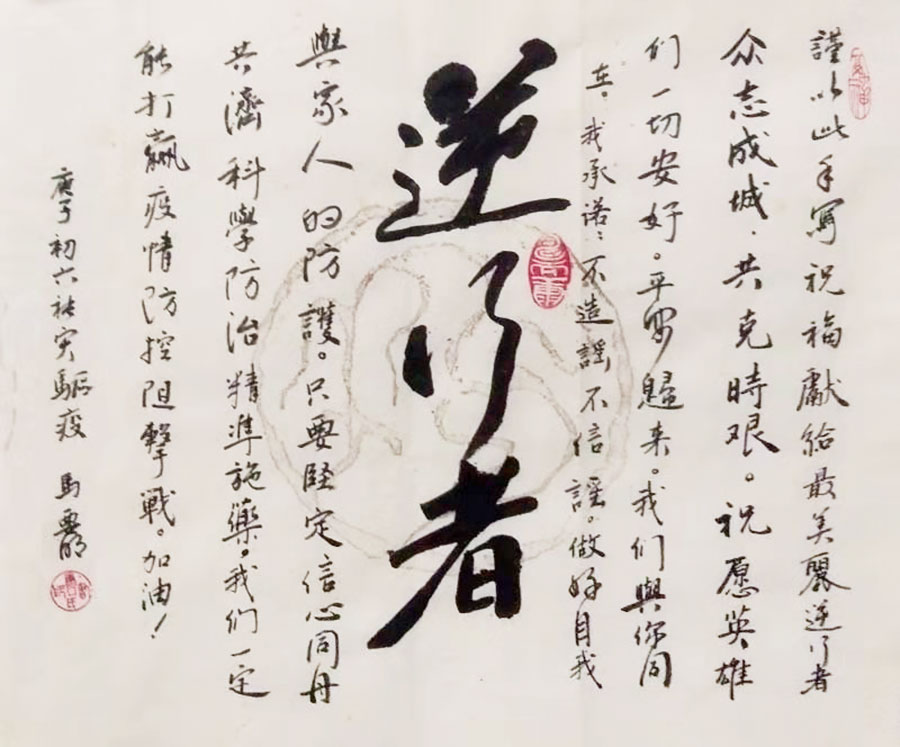 謹以此手寫祝福獻給最美麗逆行者
众志成城.共克時艰。祝愿英雄
们一切安好。平安歸来。我们與你同
在。我承诺：不造謡不信謡。做好自我
逆行者
與家人的防護。只要堅定信心同舟
共濟科學防治精準施藥。我们一定
能打赢疫情防控阻擊戰。加油！
庚子初六祛灾驅疫 馬